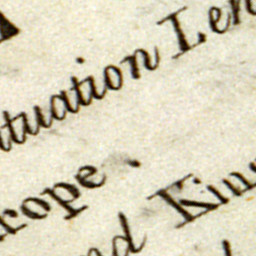 ituation Len
rope.
nd King